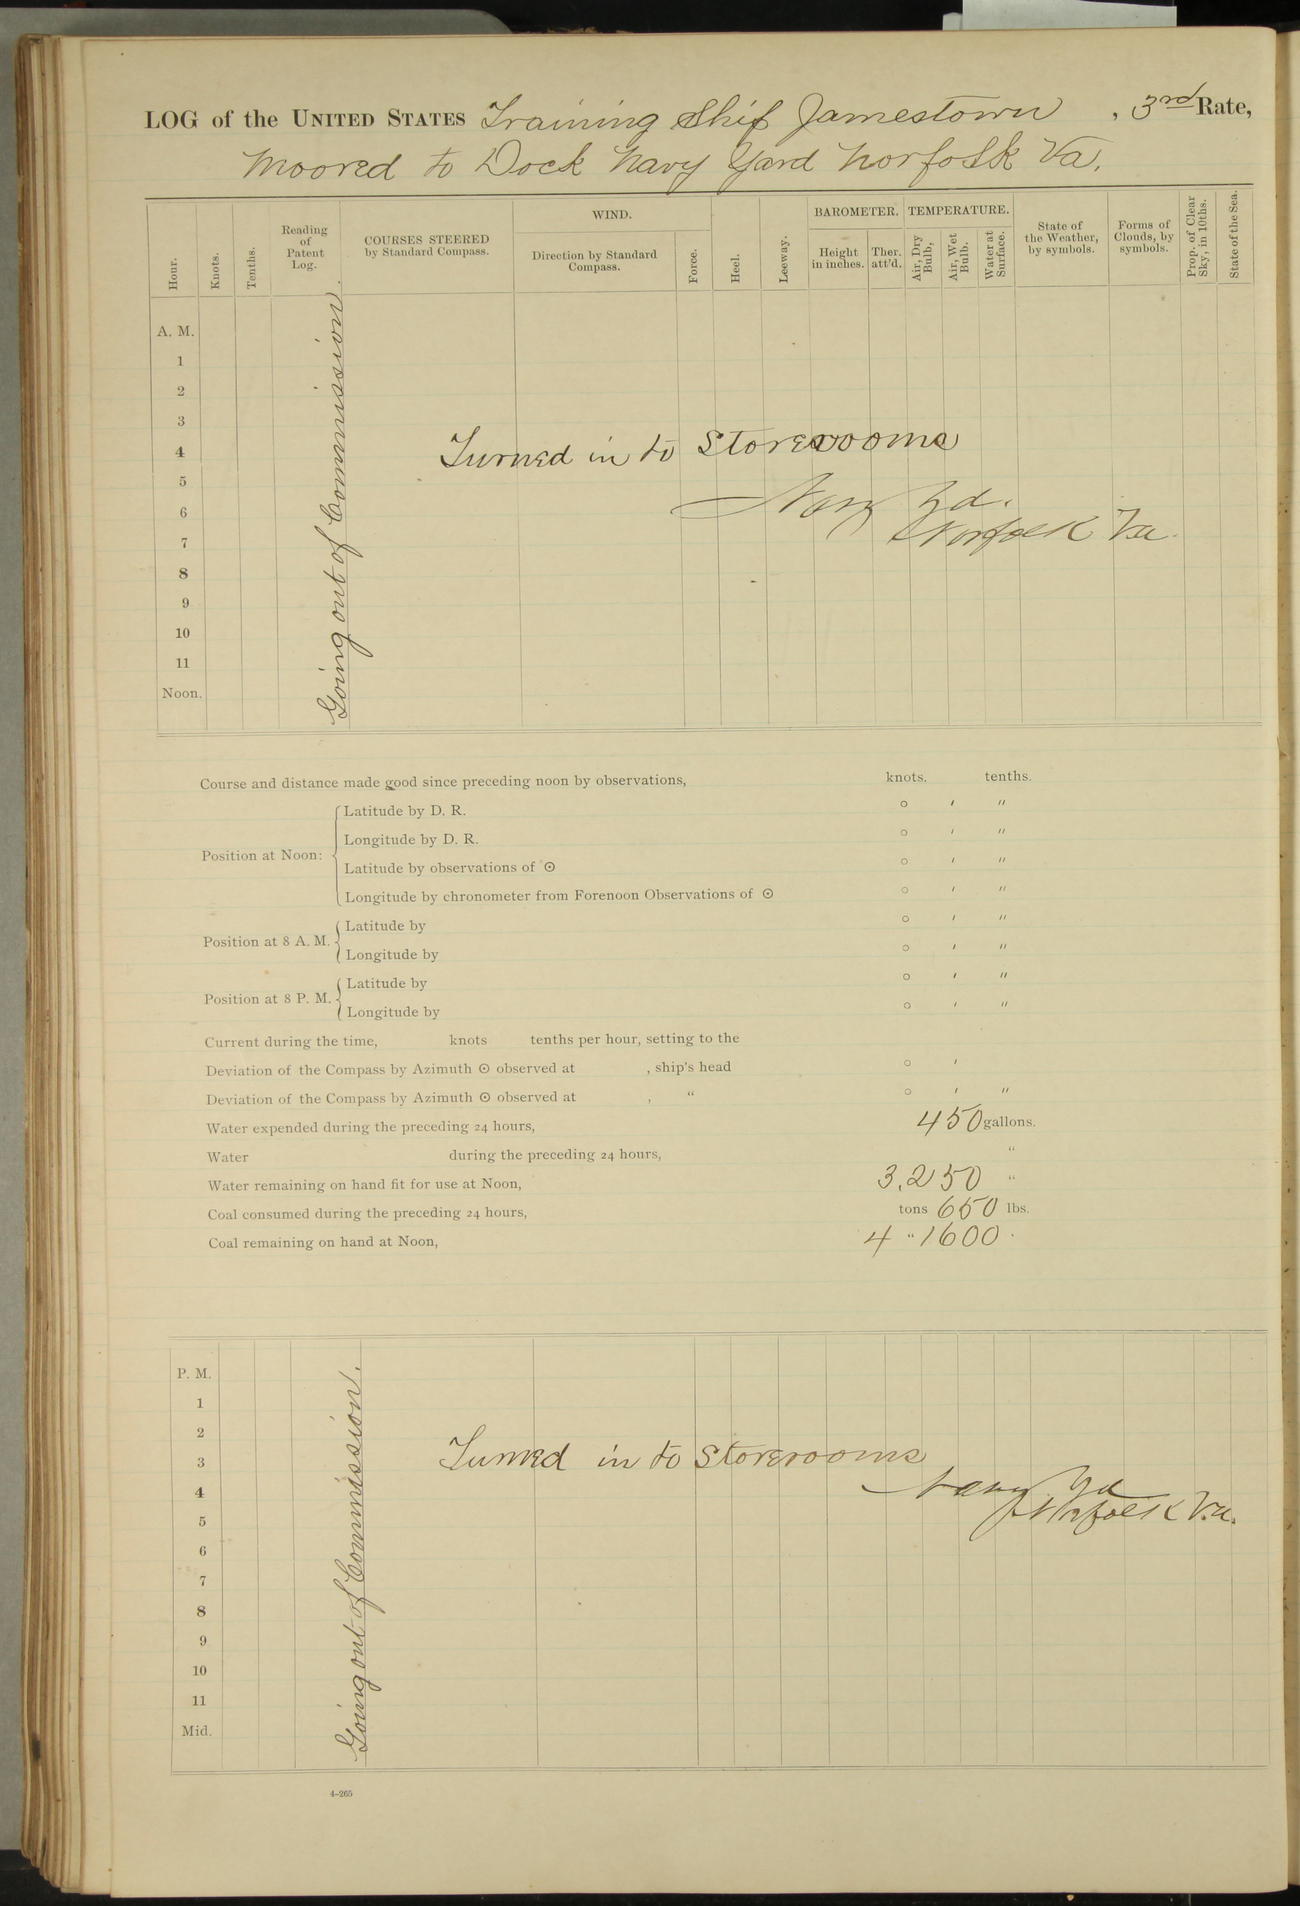 LOG of the UNITED STATES Training Ship Jamestown , 3rd Rate,
Moored to Dock Navy Yard Norfolk Va.
Hour. Knots. Tenths. Reading of Patent Log. COURSES STEERED by Standard Compass. WIND. Direction by Standard Compass. Force. Heel. Leeway. BAROMETER. Height in inches. Ther. att'd. TEMPERATURE. Air, Dry Bulb, Air, Wet Bulb. Water at Surface. State of the Weather, by symbols. Forms of Clouds, by symbols. Prop. of Clear Sky, in 10ths. State of the Sea.
Going out of Commission.
A. M.
1
2
3
4 Turned in to Storerooms
5
6 Navy Yd.
7 Norfolk Va.
8
9
10
11
Noon.
Course and distance made good since preceding noon by observations, knots. tenths.
Position at Noon:
Latitude by D. R. ° ′ ″
Longitude by D. R. ° ′ ″
Latitude by observations of ☉ ° ′ ″
Longitude by chronometer from Forenoon Observations of ☉ ° ′ ″
Position at 8 A. M.
Latitude by ° ′ ″
Longitude by ° ′ ″
Position at 8 P. M.
Latitude by ° ′ ″
Longitude by ° ′ ″
Current during the time, knots tenths per hour, setting to the
Deviation of the Compass by Azimuth ☉ observed at , ship's head ° ′
Deviation of the Compass by Azimuth ☉ observed at , “ ° ′ ″
Water expended during the preceding 24 hours, 450 gallons.
Water during the preceding 24 hours, “
Water remaining on hand fit for use at Noon, 3,250 “
Coal consumed during the preceding 24 hours, tons 650 lbs.
Coal remaining on hand at Noon, 4 “ 1600 "
Going out of Commission.
P. M.
1
2
3 Turned in to Storerooms
4 Navy Yd
5 Norfolk Va.
6
7
8
9
10
11
Mid.
4-265